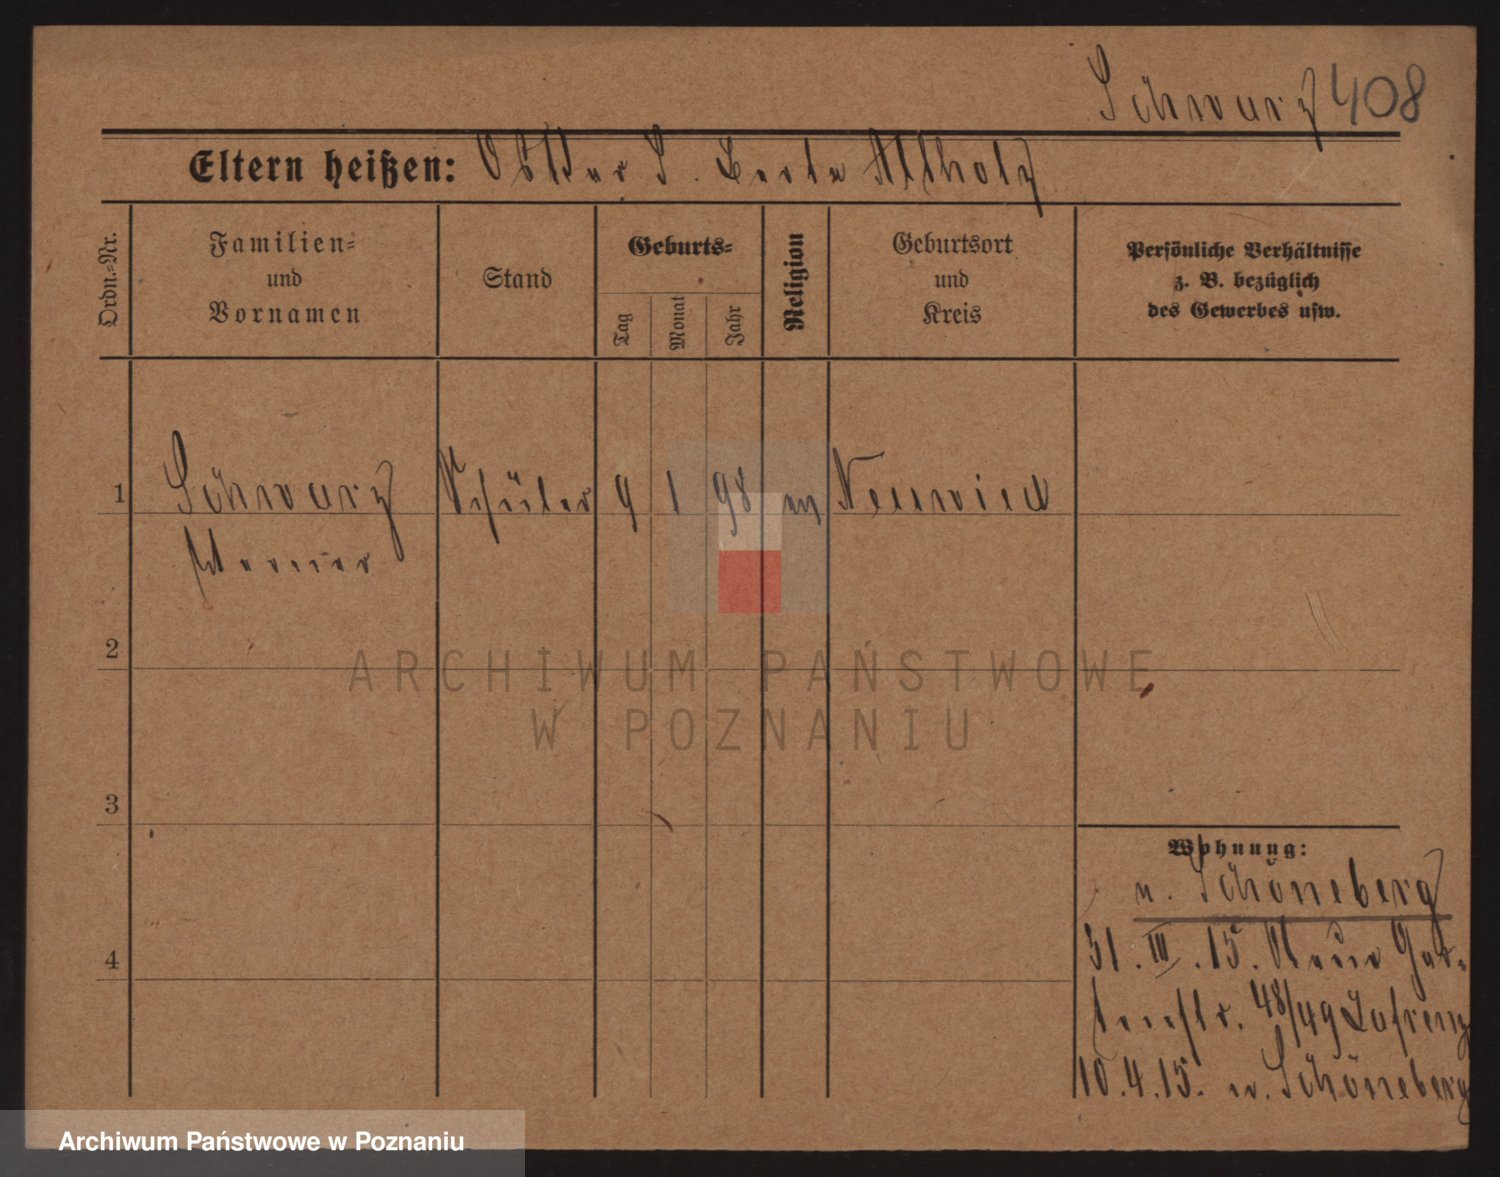 Schwarz 408
Eltern heißen: Oskar S. Berta Altholz
Ordn.-Nr.
Familien-
und
Vornamen
Stand
Geburts-
Tag
Monat
Jahr
Religion
Geburtsort
und
Kreis
Persönliche Verhältnisse
z. B. bezüglich
des Gewerbes usw.
1 Schwarz Schüler 9 1 98 m Neuwied
Werner
2
ARCHIWUM PAŃSTWOWE
W POZNANIU
3
Wohnung:
n. Schöneberg
4
31. III. 15. Neue Gar-
tenstr. 48/49 Lafrenz
10.4.15. n. Schöneberg
Archiwum Państwowe w Poznaniu